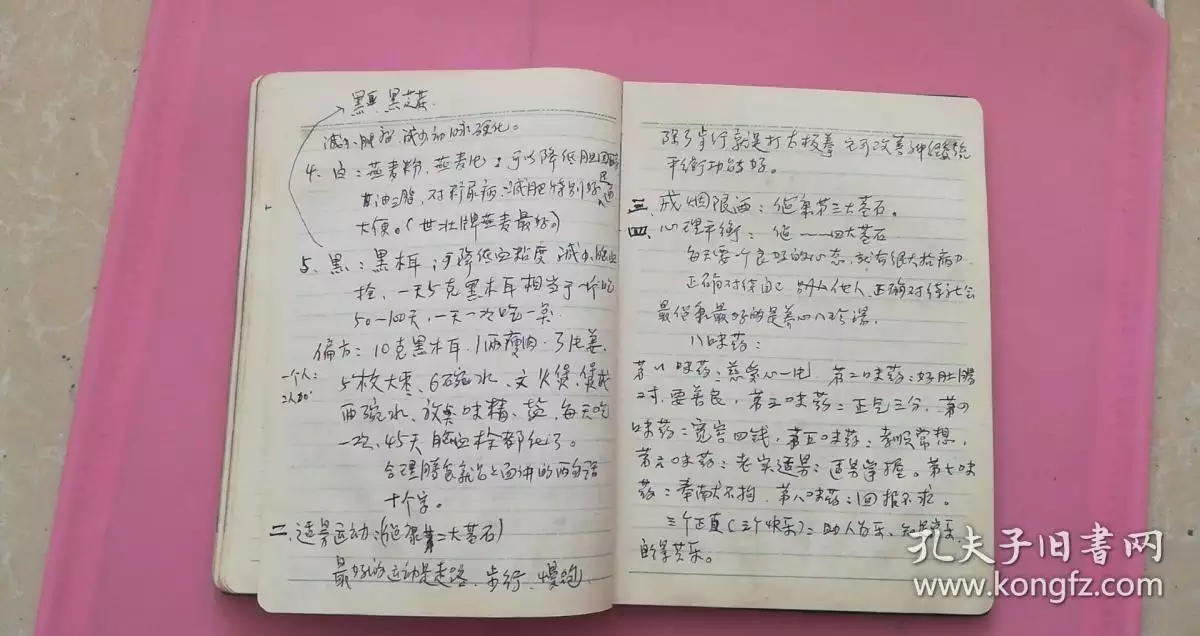 黑豆 黑芝麻
减少胆固醇,减少动脉硬化。
4、白:燕麦粉,燕麦片;可以降低胆固醇
甘油三脂,对糖尿病、减肥特别好 通
大便。(世壮牌燕麦最好。)
5、黑:黑木耳;可降低血粘度 减少脑血
栓,一天5克黑木耳相当于一
50一 天,一天一次吃一
偏方:10克黑木耳、1两瘦肉、3片姜、
一个人:
5枚大枣、6碗水、文火煲,煲成
两碗水、放点味精、盐,每天吃
一次、45天脑血栓都化了。
合理膳食就是上面讲的两句话
十个字。
二、适量运动:(健康第二大基石)
最好的运动是走路、步行、慢跑、
除了步行就是打太极拳 它可改善神经系统
平衡功能好。
三、戒烟限酒:健康第三大基石。
四、心理平衡:健一一四大基石
每天要一个良好的心态,就有很大抗病力
正确对待自己 他人,正确对待社会
最健康最好的是养心八珍汤,
八味药:
第一味药:慈爱心一片、第二味药:好肚肠
2寸,要善良,第三味药:正气三分,第四
味药:宽容四钱,第五味药:孝顺常想,
第六味药:老实适量;适量掌握。第七味
药:奉献不拘、第八味药:回报不求。
三个正直(三个快乐):助人为乐、知足常乐、
自得其乐。
孔夫子旧书网
www.kongfz.com